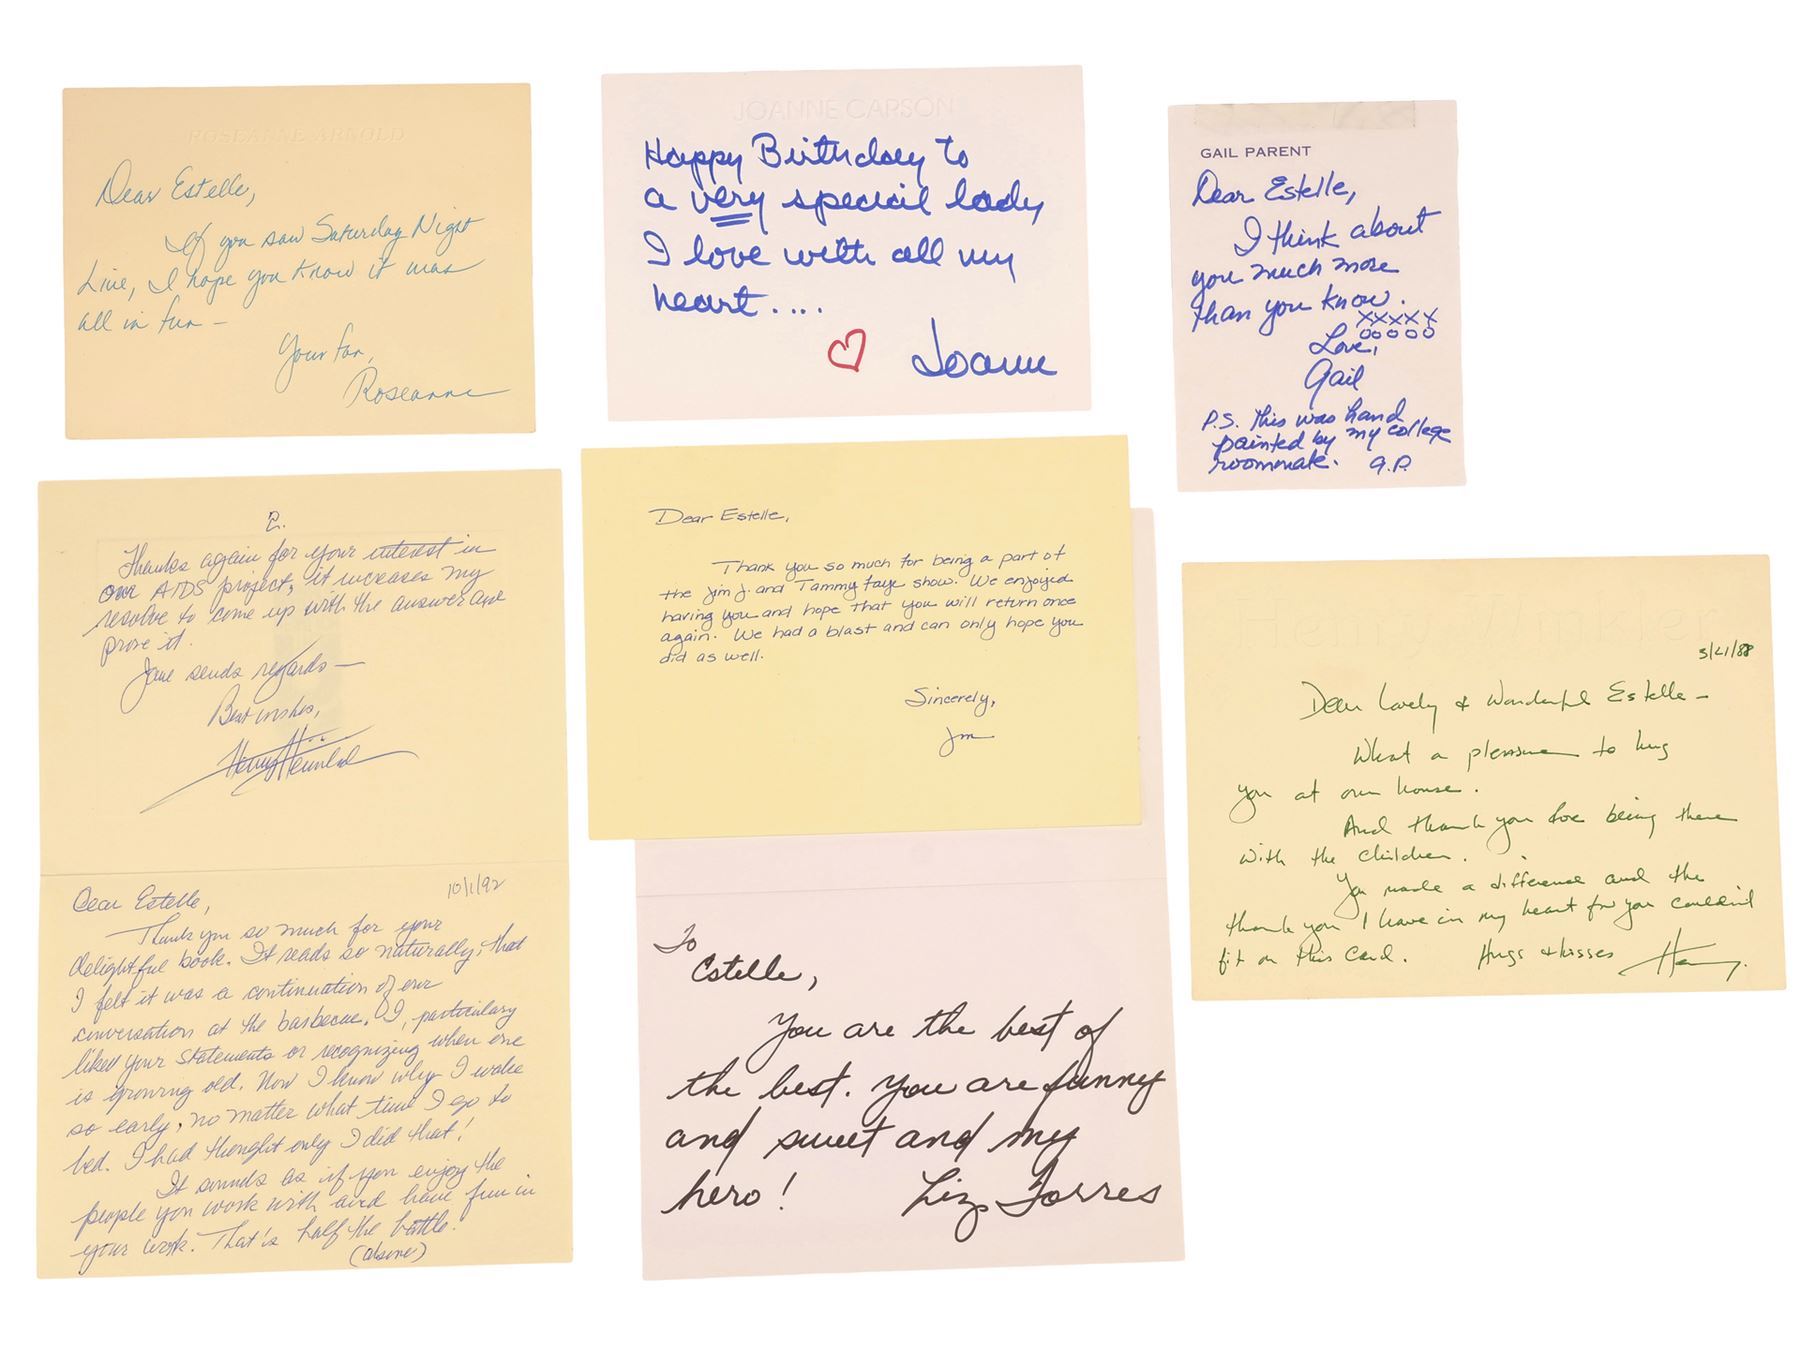 ROSEANNE ARNOLD
Dear Estelle,
If you saw Saturday Night
Live, I hope you know it was
all in fun –
Your fan,
Roseanne
JOANNE CARSON
Happy Birthday to
a very special lady
I love with all my
heart....
♡ Joanne
GAIL PARENT
Dear Estelle,
I think about
you much more
than you know.
XXXXX
OOOOO
Love,
Gail
P.S. This was hand
painted by my college
roommate. G.P.
2.
Thanks again for your interest in
our AIDS project, it increases my
resolve to come up with the answer and
prove it.
Jane sends regards –
Best wishes,
Henry Heimlich
Dear Estelle,
10/1/92
Thank you so much for your
delightful book. It reads so naturally, that
I felt it was a continuation of our
conversation at the barbecue. I, particulary
liked your statements or recognizing when one
is growing old. Now I know why I wake
so early, no matter what time I go to
bed. I had thought only I did that!
It sounds as if you enjoy the
people you work with and have fun in
your work. That's half the battle.
Dear Estelle,
Thank you so much for being a part of
the Jim J. and Tammy Faye show. We enjoyed
having you and hope that you will return once
again. We had a blast and can only hope you
did as well.
Sincerely,
Jm
To
Estelle,
You are the best of
the best. You are funny
and sweet and my
hero! Liz Torres
Dear Lovely & Wonderful Estelle –
What a pleasure to hug
you at our house.
And thank you for being there
with the children.
You made a difference and the
thank you I have in my heart for you couldn't
fit on this card. Hugs & kisses